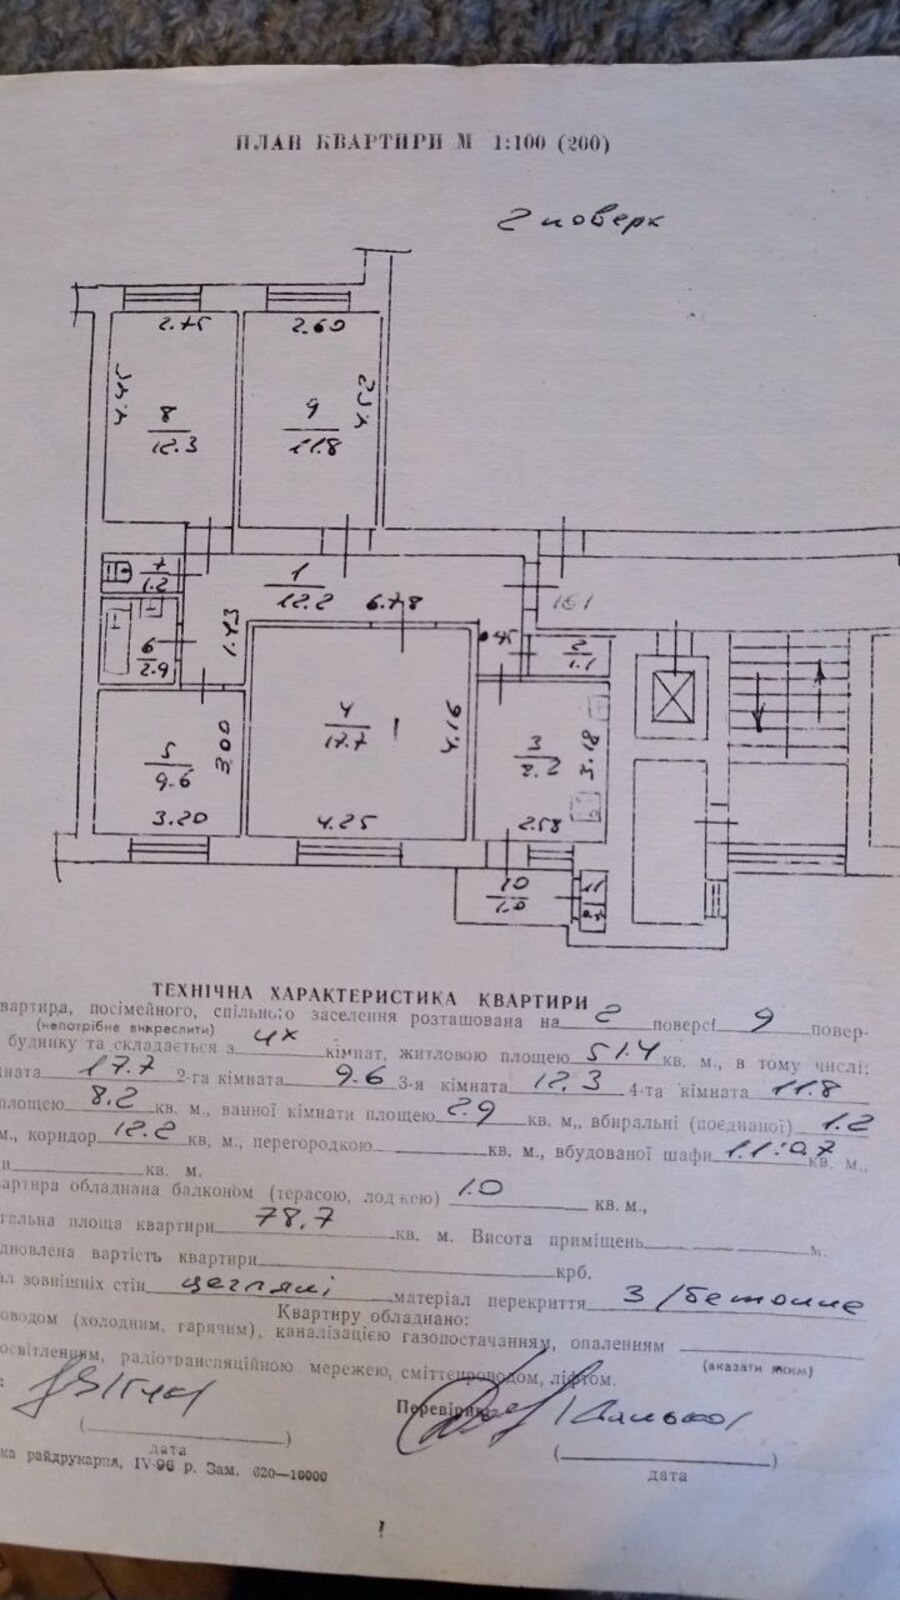 ПЛАН КВАРТИРИ М 1:100 (200)
2 поверх
2.75
2.60
8
12.3
9
11.8
7
1.2
1
12.2
6.78
161
1.43
6
2.9
2
1.1
4
17.7
4.16
3.00
5
9.6
3
8.2
3.18
3.20
4.25
2.58
10
1.0
11
0.7
ТЕХНІЧНА ХАРАКТЕРИСТИКА КВАРТИРИ
вартира, посімейного, спільного заселення розташована на 2 поверсі 9 повер-
(непотрібне викреслити)
будинку та складається з 4х кімнат, житловою площею 51.4 кв. м., в тому числі:
мната 17.7 2-га кімната 9.6 3-я кімната 12.3 4-та кімната 11.8
площею 8.2 кв. м., ванної кімнати площею 2.9 кв. м., вбиральні (поєднаної) 1.2
м., коридор 12.2 кв, м., перегородкою кв. м., вбудованої шафи 1.1:0.7 кв. м.,
и кв. м.
артира обладнана балконом (терасою, лоджею) 1.0 кв. м.,
гальна площа квартири 78,7 кв. м. Висота приміщень м.
дновлена вартість квартири крб.
ал зовнішніх стін цегляні матеріал перекриття З/бетонне
Квартиру обладнано:
оводом (холодним, гарячим), каналізацією газопостачанням, опаленням
(вказати яким)
освітленням, радіотрансляційною мережею, сміттєпроводом, ліфтом.
Перевірив
дата
дата
ка райдрукарня, IV-96 р. Зам. 620—10000